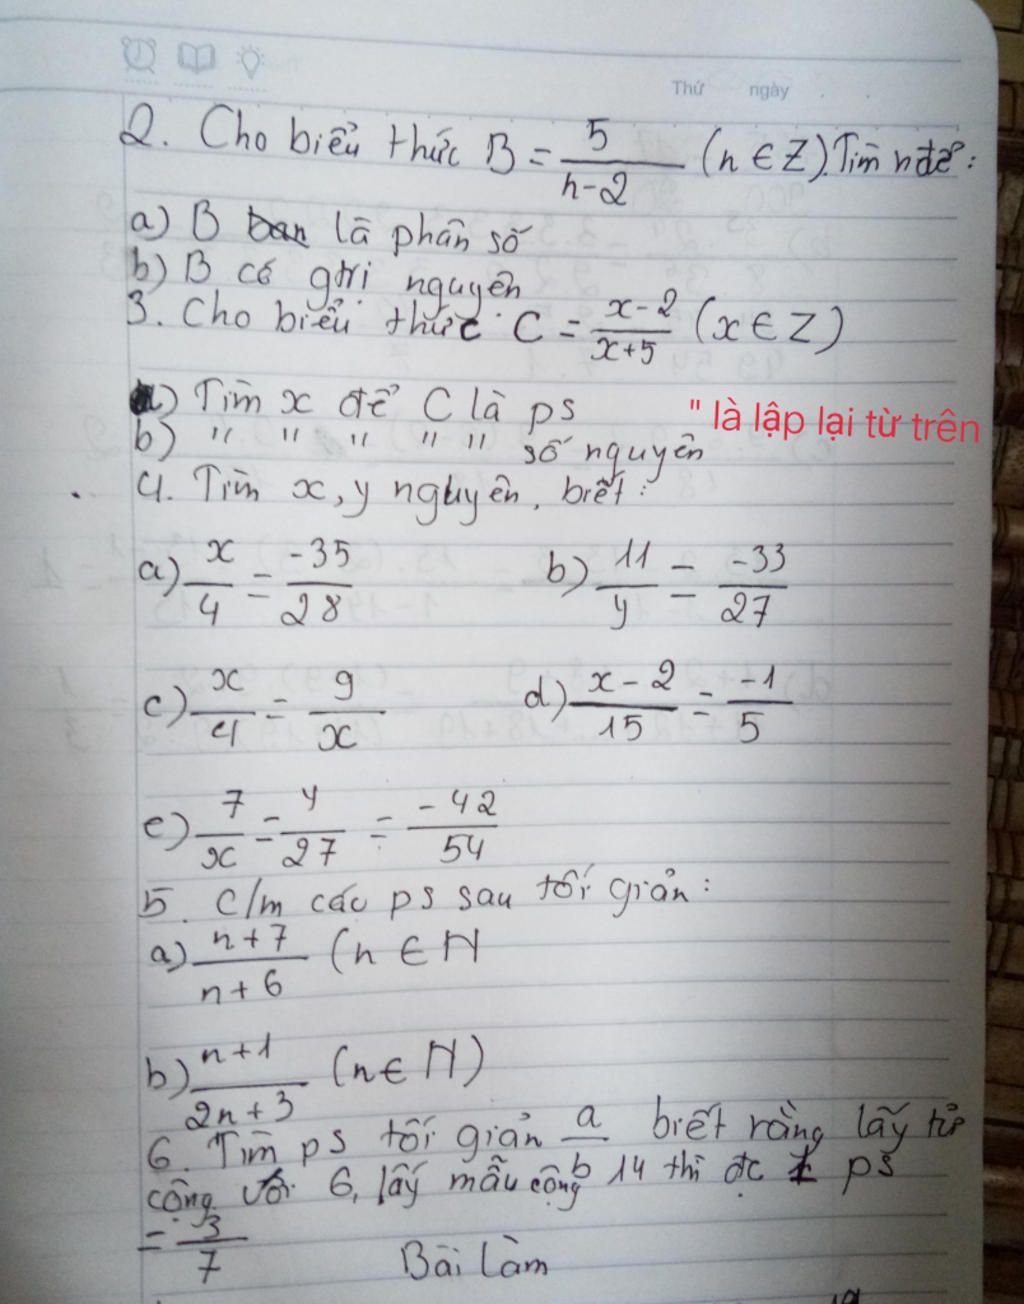 Thứ ngày
2. Cho biểu thức B = 5/(n-2) (n ∈ Z). Tìm n để:
a) B là phân số
b) B có gtri nguyên
3. Cho biểu thức C = (x-2)/(x+5) (x ∈ Z)
a) Tìm x để C là ps
" là lập lại từ trên
b) " " " " " số nguyên
4. Tìm x, y nguyên, biết:
a) x/4 = -35/28 b) 11/y = -33/27
c) x/4 = 9/x d) (x-2)/15 = -1/5
e) 7/x = y/27 = -42/54
5. C/m các ps sau tối giản:
a) (n+7)/(n+6) (n ∈ N
b) (n+1)/(2n+3) (n ∈ N)
6. Tìm ps tối giản a/b biết rằng lấy tử
cộng với 6, lấy mẫu cộng 14 thì đc ps
= 3/7
Bài làm